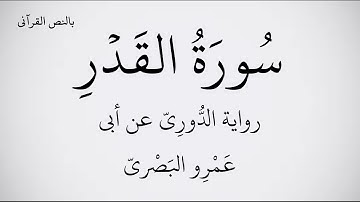 بالنص القرآنى
سُورَةُ القَدْرِ
رواية الدُّورِىّ عن أبى
عَمْرِو البَصْرِىّ